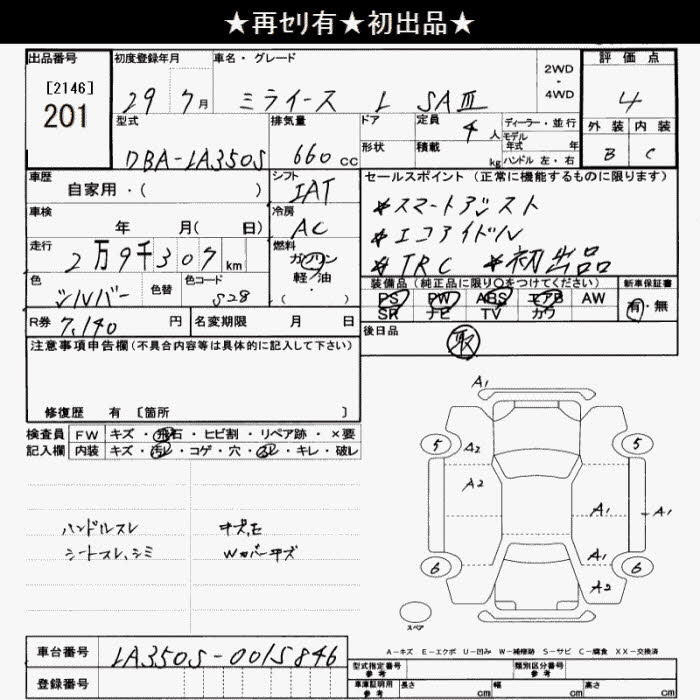 ★再ｾﾘ有★初出品★
出品番号
[2146]
201
初度登録年月
29 7月
車名・グレード
ミライース L SAⅢ
2WD
・
4WD
評価点
4
外装 内装
B C
型式
DBA-LA350S
排気量
660 cc
ドア
形状
定員
4人
積載
kg
ディーラー・並行
モデル
年式 年
ハンドル 左・右
車歴
自家用・( )
シフト
IAT
車検
年 月( 日)
冷房
AC
走行
2万9千307km
燃料
ガソリン
軽油・
( )
色
シルバー
色替
色コード
S28
R券 7,140 円
名変期限 月 日
セールスポイント(正常に機能するものに限ります)
*スマートアシスト
*エコアイドル
*TRC *初出品
装備品(純正品に限り○をつけてください)
PS PW ABS エアB AW
SR ナビ TV カワ
新車保証書
有・無
後日品
取
注意事項申告欄(不具合内容等は具体的に記入して下さい)
修復歴 有 〔箇所 〕
検査員
記入欄
FW キズ・飛石・ヒビ割・リペア跡・×要
内装 キズ・汚レ・コゲ・穴・スレ・キレ・破レ
ハンドルスレ
シートスレ、シミ
Wカバーキズ
A1
5 5
A2
A2
A1 A1
A1
6 6
A2
スペア
A-キズ E-エクボ U-凹み W-補修跡 S-サビ C-腐食 XX-交換済
車台番号 LA350S-0015846
登録番号
型式指定番号
参考
類別区分番号
参考
車庫証明用
参考
長さ cm 幅 cm 高さ cm